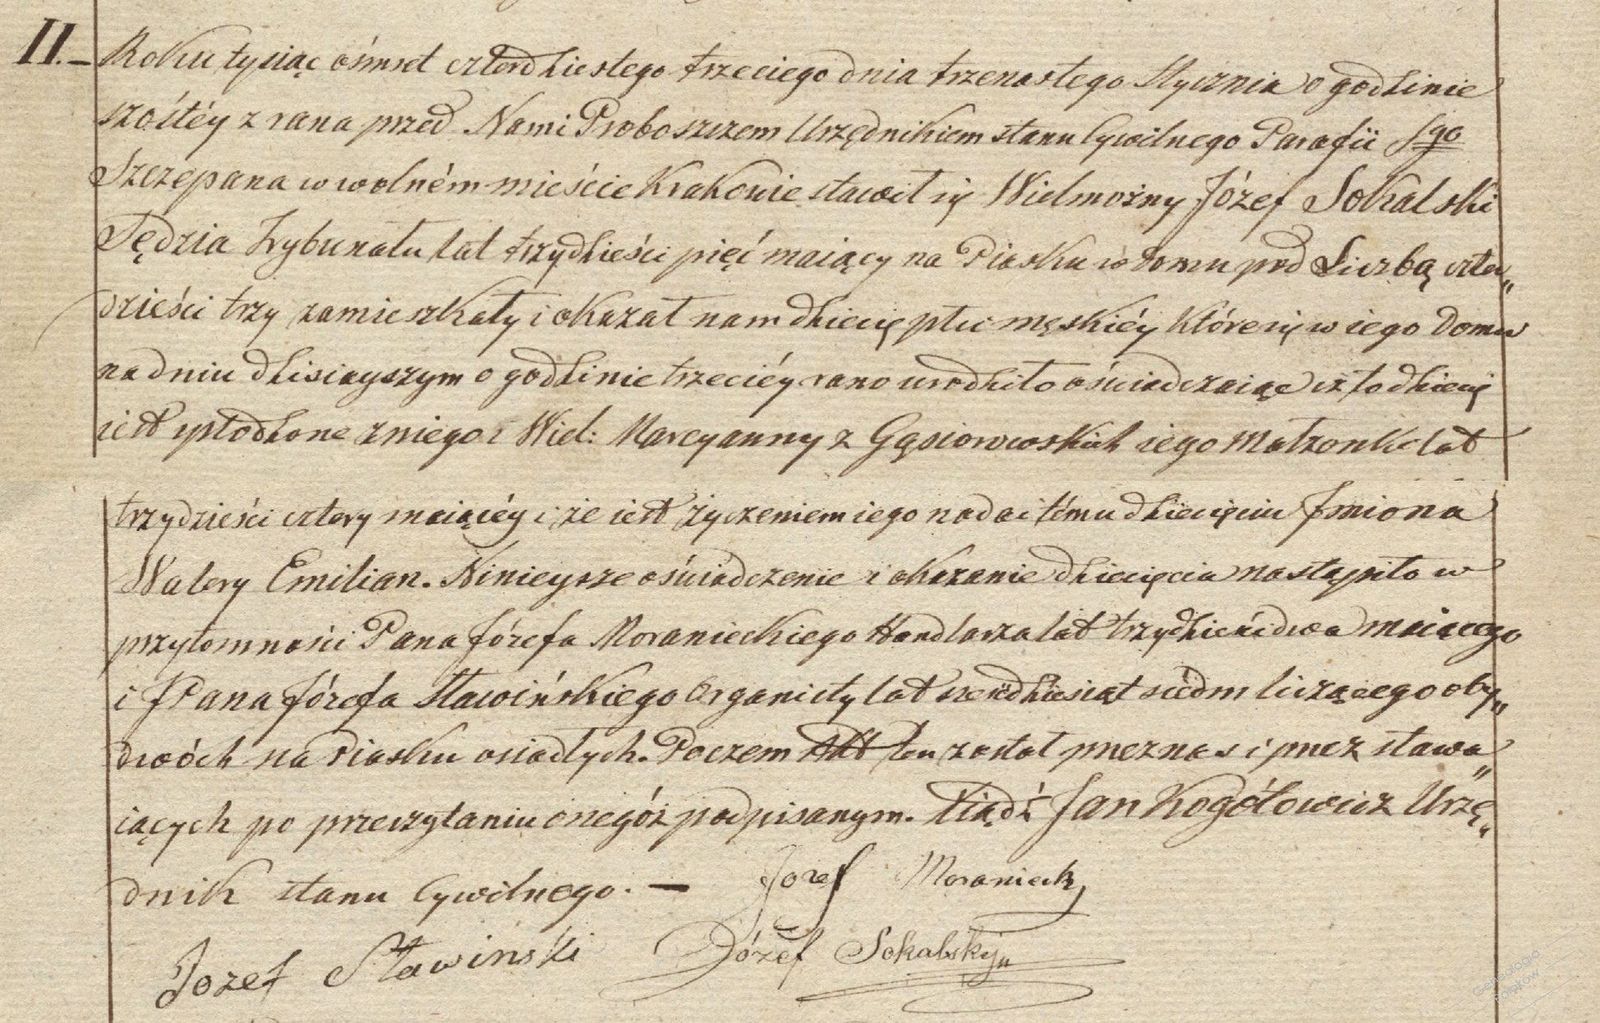 II. – Roku tysiąc óśmset czterdziestego trzeciego dnia trzenastego Stycznia o godzinie
szóstéy z rana przed Nami Proboszczem Urzędnikiem stanu Cywilnego Parafii Sgo
Szczepana w wolném mieście Krakowie stawił się Wielmożny Józef Sokalski
Sędzia Trybunału lat trzydzieści pięć maiący na Piasku w domu pod Liczbą czter„
dzieści trzy zamieszkały i okazał nam dziecię płci męskiéy które się w iego Domu
na dniu dzisiayszym o godzinie trzeciéy rano urodziło oświadczaiąc iż to dziecię
iest spłodzone z niego i Wiel: Marcyanny z Gąsiorowskich iego Małżonki lat
trzydzieści cztery maiącéy i że iest życzeniem iego nadać tému dziecięciu Imiona
Walery Emilian. Ninieysze oświadczenie i okazanie dziecięcia nastąpiło w
przytomności Pana Józefa Moranieckiego Handlarza lat trzydzieści dwa maiącego
i JPana Józefa Sławińskiego Organisty lat sześćdziesiąt siedm liczącego oby„
dwóch na Piasku osiadłych. Poczem Akt ten został przez nas i przez stawa„
iących po przeczytaniu onegóż podpisanym. Xiądz Jan Kogółowicz Urzę„
dnik stanu Cywilnego. — Jozef Moraniecki
Jozef Sławinski Józef Sokalskij
Genealogia Polaków